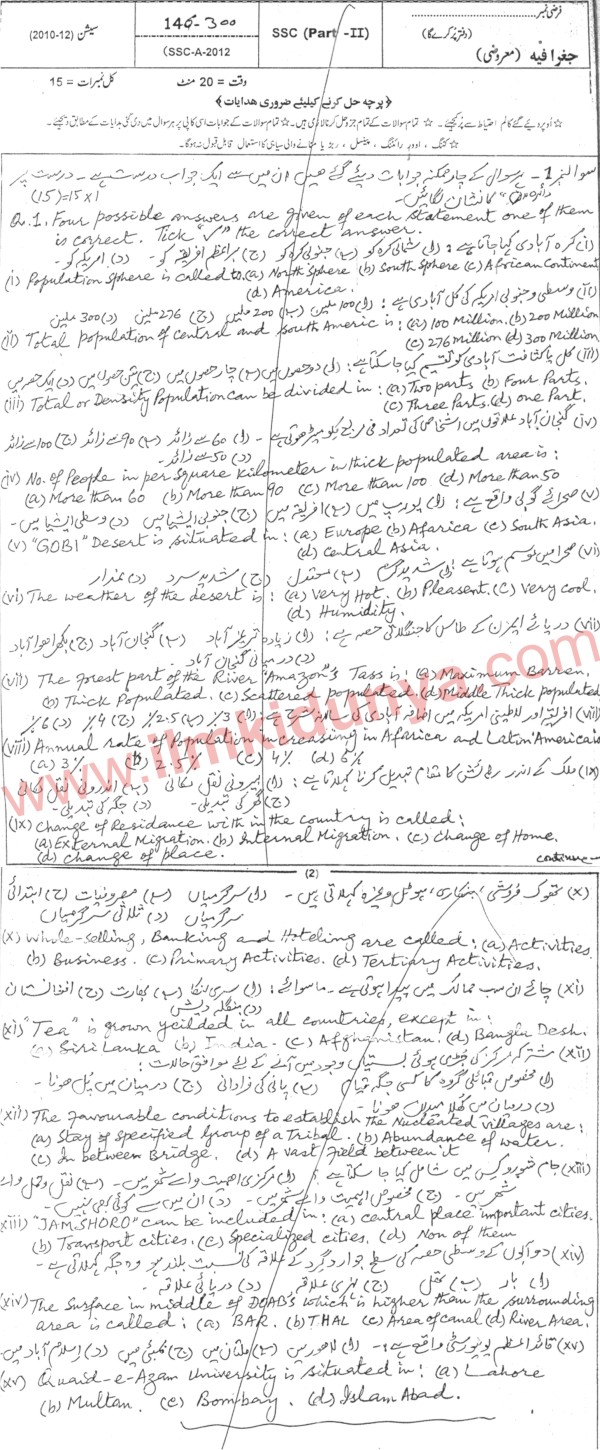 فرضی نمبر
(دفتر پُر کرے گا)
جغرافیہ (معروضی)
SSC (Part -II)
146-300
(SSC-A-2012
سیشن (12-2010)
وقت = 20 منٹ
کل نمبرات = 15
﴿ پرچہ حل کرنے کیلئیے ضروری ھدایات ﴾
سوال نمبر 1- ہر سوال کے چار ممکنہ جوابات دیئے گئے ھیں ان میں سے ایک جواب درست ہے۔ درست پر
دائرہ کا نشان لگائیں۔ (15)=15x1
Q.1. Four possible answers are given of each statement one of them
is correct. Tick "✓" the correct answer.
(i) کرہ آبادی کہا جاتا ہے: (ا) شمالی کرہ کو (ب) جنوبی کرہ کو (ج) براعظم افریقہ کو۔ (د) امریکہ کو۔
(i) Population sphere is called to. (a) North Sphere (b) South Sphere (c) African Continent
(d) America.
(ii) وسطی و جنوبی امریکہ کی کل آبادی ہے: (ا) 100 ملین (ب) 200 ملین (ج) 276 ملین (د) 300 ملین
(ii) Total population of central and South Americ is: (a) 100 Million. (b) 200 Million
(c) 276 million (d) 300 Million
(iii) کل یا کثافت آبادی کو تقسیم کیا جا سکتا ہے: (ا) دو حصوں میں (ب) چار حصوں میں (ج) تین حصوں میں (د) ایک حصہ میں
(iii) Total or Density Population can be divided in: (a) Two parts (b) Four Parts.
(c) Three Parts. (d) one Part.
(iv) گنجان آباد علاقوں میں اشخاص کی تعداد فی مربع کلو میٹر ھوتی ہے۔ (ا) 60 سے زائد (ب) 90 سے زائد (ج) 100 سے زائد
(د) 50 سے زائد۔
(iv) No. of People in per Square kilometer in thick populated area is:
(a) More than 60 (b) More than 90 (c) More than 100 (d) More than 50
(v) صحرائے گوبی واقع ہے: (ا) یورپ میں (ب) افریقہ میں (ج) جنوبی ایشیا میں (د) وسطی ایشیا میں۔
(v) "GOBI" Desert is situated in: (a) Europe (b) Afarica (c) South Asia.
(d) Central Asia.
(vi) صحرا میں موسم ہوتا ہے: (ا) شدید گرم (ب) معتدل (ج) شدید سرد (د)
(vi) The weather of the desert is: (a) Very Hot. (b) Pleasent. (c) Very cool.
(d) Humidity.
(vii) دریائے ایمزن کے طاس کا جنگلاتی حصہ ہے: (ا) زیادہ تر بنجر آباد (ب) گنجان آباد (ج) بکھرا ھوا آباد
(د) درمیانی گنجان آباد۔
(vii) The forest part of the River "Amazon"s Tass is: (a) Maximum Barren.
(b) Thick Populated. (c) Scattered populated. (d) Middle Thick populated
(viii) افریقہ اور لاطینی امریکہ میں اضافہ آبادی کی سالانہ شرح ہے: (ا) 3% (ب) 2.5% (ج) 4% (د) 6%
(viii) Annual rate of Population increasing in Afarica and Latin America is
(a) 3% (b) 2.5% (c) 4% (d) 6%
(ix) ملک کے اندر رہائش کا مقام تبدیل کرنا کہلاتا ہے: (ا) بیرونی نقل مکانی (ب) اندرونی نقل مکانی
(ج) گھر کی تبدیلی۔ (د) جگہ کی تبدیلی۔
(ix) Change of Residance with in the country is called:
(a) External Migration. (b) Internal Migration. (c) Change of Home.
(d) change of place.
continue—
(2)
(x) تھوک فروشی، بنکاری، ہوٹل وغیرہ کہلاتی ہیں۔ (ا) سرگرمیاں (ب) مصروفیات (ج) ابتدائی
سرگرمیاں (د) ثلاثی سرگرمیاں
(x) Whole-selling, Banking and Hoteling are called: (a) Activities.
(b) Business. (c) Primary Activities. (d) Tertiary Activities.
(xi) چائے ان سب ممالک میں پیدا ہوتی ہے۔ ماسوائے: (ا) سری لنکا (ب) بھارت (ج) افغانستان
(د) بنگلہ دیش
(xi) "Tea" is grown yeilded in all countries, except in:
(a) Siri Lanka (b) India. (c) Afghanistan. (d) Bangla Desh.
(xii) بستیاں وجود میں آنے کے لئے موافق حالات:
(ا) مخصوص قبائلی گروہ کا کسی جگہ قیام (ب) پانی کی فراوانی (ج) درمیان میں پل ھونا۔
(د) درمیان میں کھلا میدان ھونا۔
(xii) The Favourable conditions to establish the Nucleated villages are:
(a) Stay of specified Group of a Tribal. (b) Abundance of water.
(c) In between Bridge. (d) A vast field between it
(xiii) جام شورو کو کس میں شامل کیا جا سکتا ہے: (ا) مرکزی اھمیت والے شہر میں۔ (ب) نقل و حمل والے
شہر میں۔ (ج) مخصوص اہمیت والے شہر میں۔ (د) ان میں سے کوئی بھی نہیں۔
xiii) "JAMSHORO" can be included in: (a) central place important cities.
(b) Transport cities. (c) Specialized cities. (d) Non of them
(xiv) دوآبوں کے وسطی حصہ کی سطح جو اردگرد کے علاقہ کی نسبت بلند ہو وہ جگہ کہلاتی ہے۔
(ا) بار (ب) تھل (ج) نہری علاقہ (د) دریائی علاقہ۔
(xiv) The Surface in middle of DOAB's which is higher than the surrounding
area is called: (a) BAR. (b) THAL (c) Area of canal (d) River Area.
(xv) قائداعظم یونیورسٹی واقع ہے: (ا) لاھور میں (ب) ملتان میں (ج) بمبئی میں (د) اسلام آباد میں
(xv) Quaid-e-Azam University is situated in: (a) Lahore
(b) Multan. (c) Bombay. (d) Islam Abad.
www.ilmkidunya.com